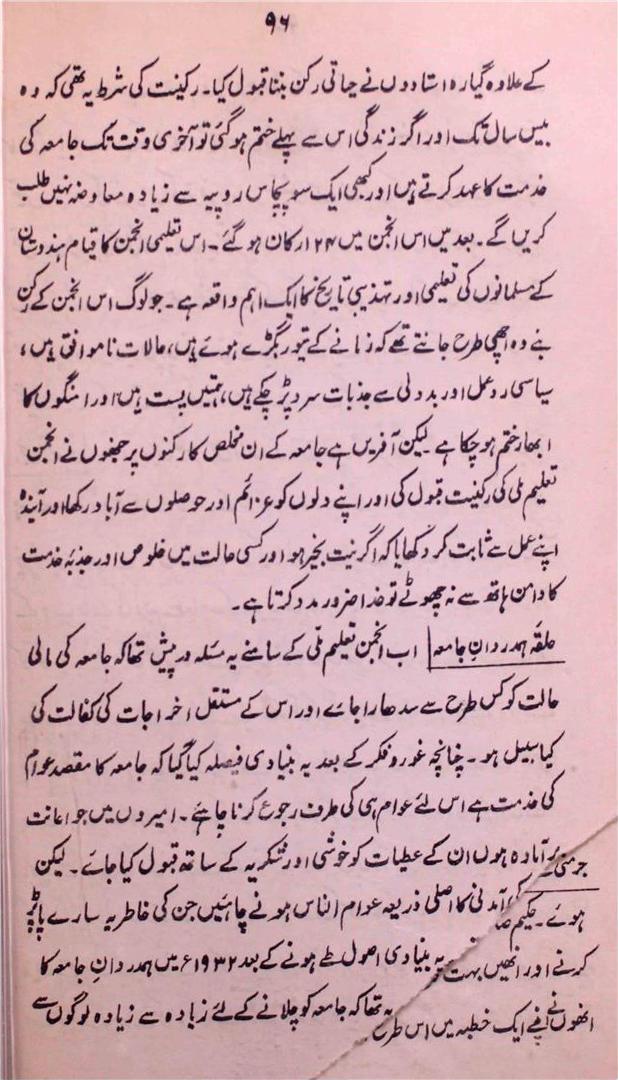 ۹۶
کے علاوہ گیارہ استادوں نے حیاتی رکن بننا قبول کیا۔ رکنیت کی شرط یہ تھی کہ وہ
بیس سال تک اور اگر زندگی اس سے پہلے ختم ہو گئی تو آخری وقت تک جامعہ کی
خدمت کا عہد کرتے ہیں اور کبھی ایک سو پچاس روپیہ سے زیادہ معاوضہ نہیں طلب
کریں گے۔ بعد میں اس انجمن میں ۲۴ ارکان ہو گئے۔ اس تعلیمی انجمن کا قیام ہندوستان
کے مسلمانوں کی تعلیمی اور تہذیبی تاریخ کا ایک اہم واقعہ ہے۔ جو لوگ اس انجمن کے رکن
بنے وہ اچھی طرح جانتے تھے کہ زمانے کے تیور بگڑے ہوئے ہیں، حالات ناموافق ہیں،
سیاسی ردعمل اور بددلی سے جذبات سرد پڑ چکے ہیں، ہمتیں پست ہیں اور امنگوں کا
ابھار ختم ہو چکا ہے لیکن آفریں ہے جامعہ کے ان مخلص کارکنوں پر جنھوں نے انجمن
تعلیم ملی کی رکنیت قبول کی اور اپنے دلوں کو عزائم اور حوصلوں سے آباد رکھا اور آیندہ
اپنے عمل سے ثابت کر دکھایا کہ اگر نیت بخیر ہو اور کسی حالت میں خلوص اور جذبۂ خدمت
کا دامن ہاتھ سے نہ چھوٹے تو خدا ضرور مدد کرتا ہے۔
حلقۂ ہمدردانِ جامعہ اب انجمن تعلیم ملّی کے سامنے یہ مسئلہ درپیش تھا کہ جامعہ کی مالی
حالت کو کس طرح سے سدھارا جائے اور اس کے مستقل اخراجات کی کفالت کی
کیا سبیل ہو۔ چنانچہ غور و فکر کے بعد یہ بنیادی فیصلہ کیا گیا کہ جامعہ کا مقصد عوام
کی خدمت ہے اس لئے عوام ہی کی طرف رجوع کرنا چاہئے۔ امیروں میں جو اعانت
پر آمادہ ہوں ان کے عطیات کو خوشی اور شکریہ کے ساتھ قبول کیا جائے۔ لیکن
آمدنی کا اصلی ذریعہ عوام الناس ہونے چاہئیں جن کی خاطر یہ سارے پاپڑ
یہ بنیادی اصول طے ہونے کے بعد ۱۹۳۲ء میں ہمدردانِ جامعہ کا
یہ تھا کہ جامعہ کو چلانے کے لئے زیادہ سے زیادہ لوگوں سے
جرمنی
ہوئے۔ حکیم
کرنے اور انھیں بہت
انھوں نے اپنے ایک خطبہ میں اس طرح